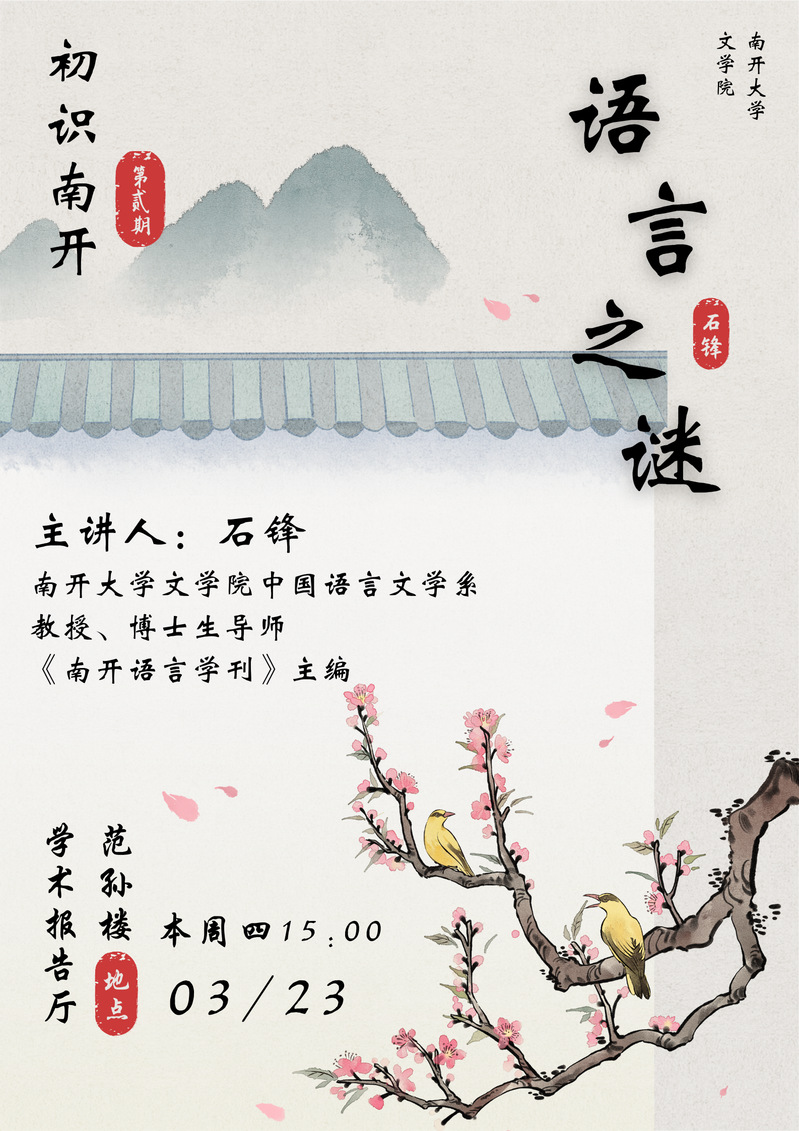 南开大学
文学院
语言之谜
石锋
初识南开
第贰期
主讲人：石锋
南开大学文学院中国语言文学系
教授、博士生导师
《南开语言学刊》主编
范孙楼
学术报告厅
地点
本周四15:00
03/23